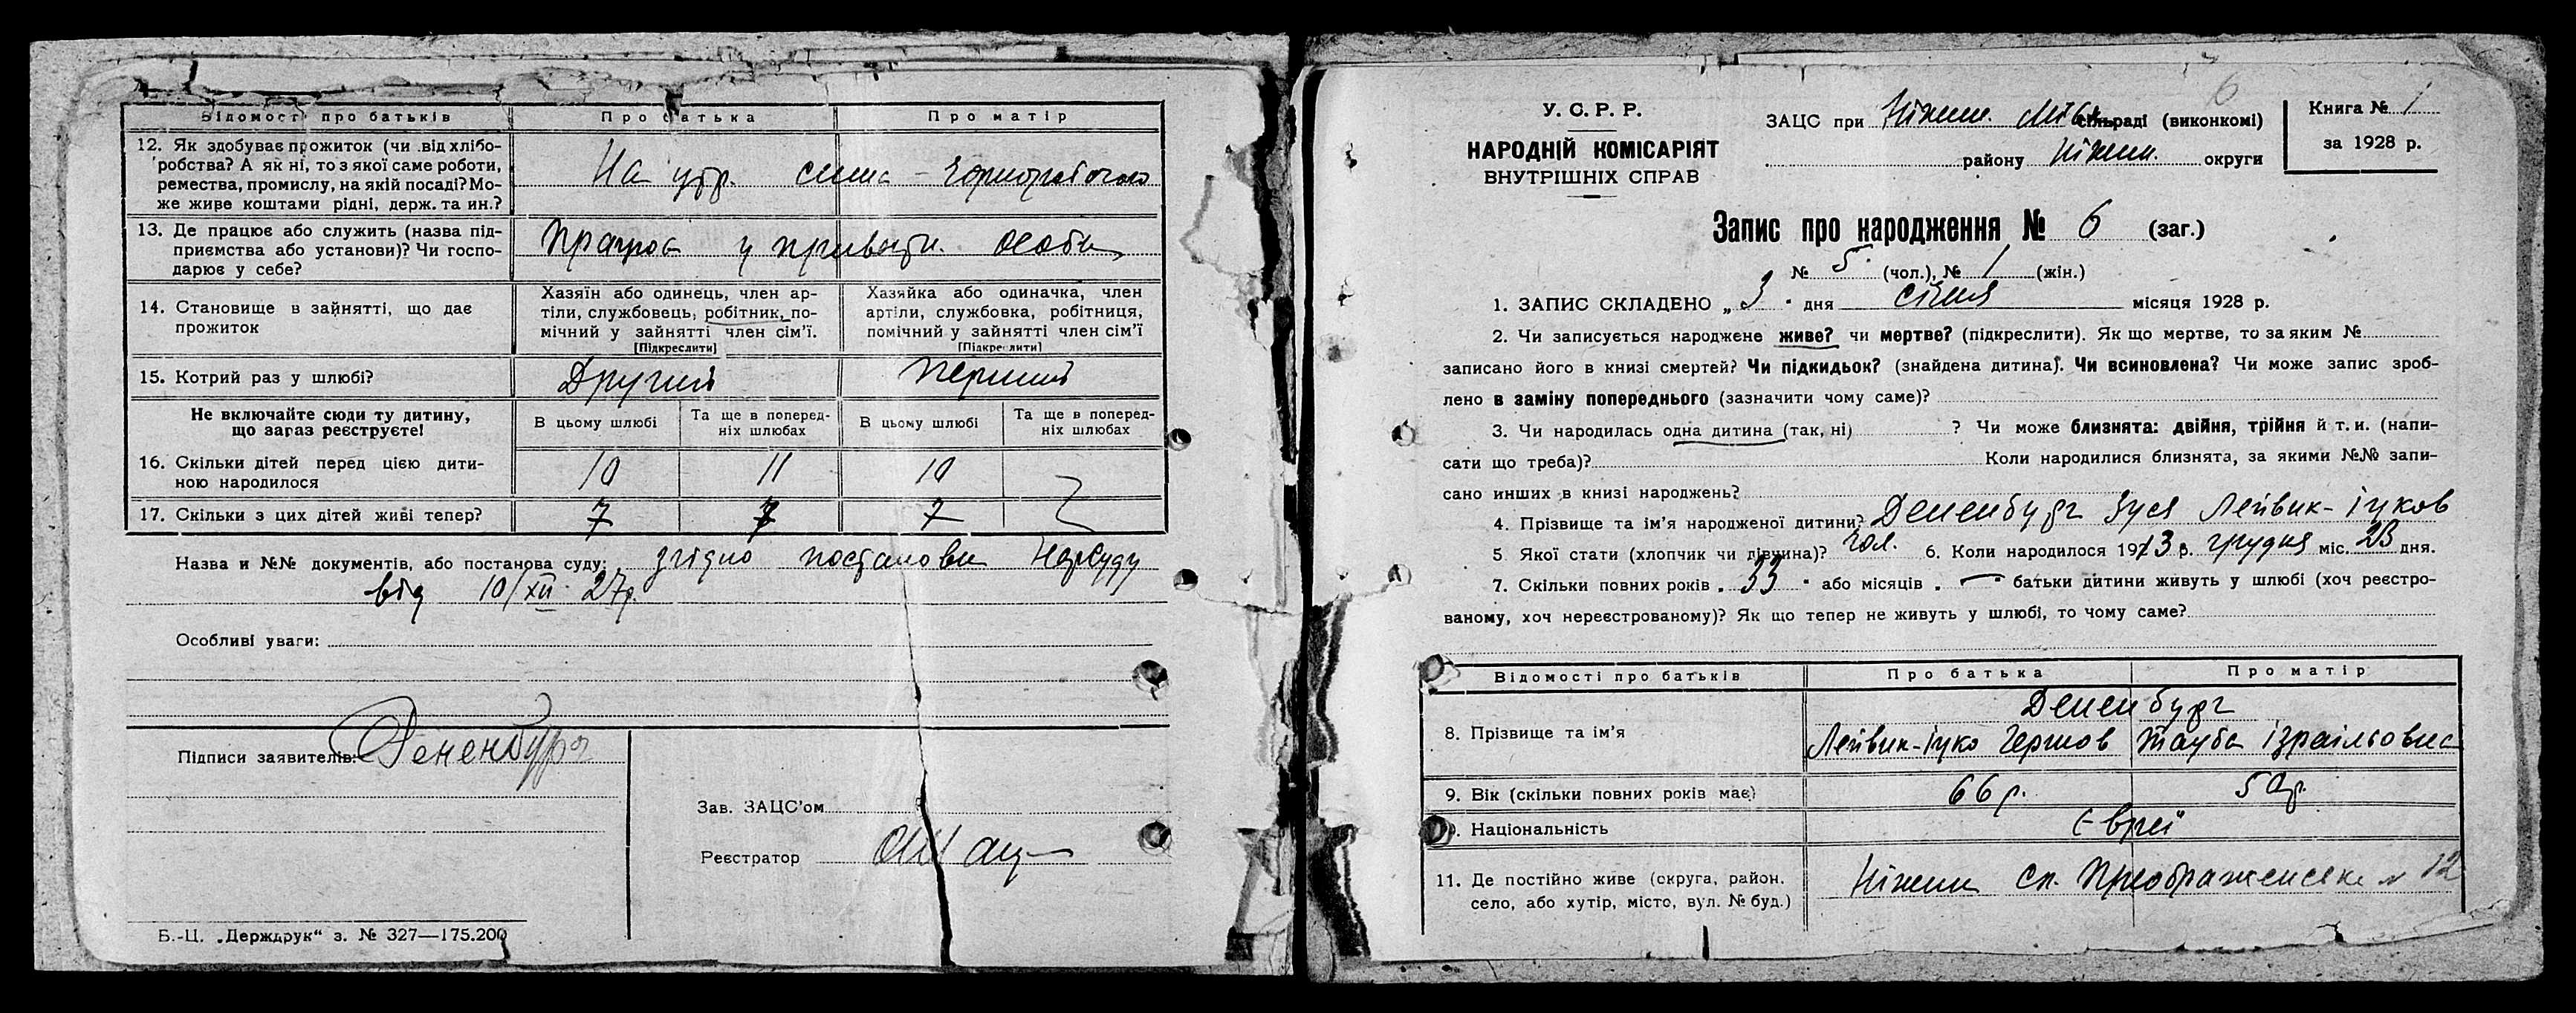 Відомості про батьків Про батька Про матір
12. Як здобуває прожиток (чи від хлібо-
робства? А як ні, то з якої саме роботи,
ремества, промислу, на якій посаді? Мо-
же живе коштами рідні, держ. та ин.?
На утр. сина - чорнороб
13. Де працює або служить (назва під-
приємства або установи)? Чи госпо-
дарює у себе?
Працює у приватн. особи
14. Становище в зайнятті, що дає
прожиток
Хазяїн або одинець, член ар-
тіли, службовець, робітник, по-
мічний у зайнятті член сім'ї.
[Підкреслити]
Хазяйка або одиначка, член
артіли, службовка, робітниця,
помічний у зайнятті член сім'ї
[Підкреслити]
15. Котрий раз у шлюбі? Другий Перший
Не включайте сюди ту дитину,
що зараз реєструєте!
В цьому шлюбі
Та ще в поперед-
ніх шлюбах
В цьому шлюбі
Та ще в поперед-
ніх шлюбах
16. Скільки дітей перед цією дити-
ною народилося
10 11 10
17. Скільки з цих дітей живі тепер? 7 7 7
Назва и №№ документів, або постанова суду: згідно постанови Нарсуду
від 10/XII 27р.
Особливі уваги:
Підписи заявителів: Дененбург
Зав. ЗАЦС'ом
Реєстратор
Б.-Ц. „Держдрук“ з. № 327—175.200
6
У. С. Р. Р.
НАРОДНІЙ КОМІСАРІЯТ
ВНУТРІШНІХ СПРАВ
ЗАЦС при Ніжин. сільраді (виконкомі)
району Ніжин. округи
Книга № 1
за 1928 р.
Запис про народження № 6 (заг.)
№ 5 (чол.), № 1 (жін.)
1. ЗАПИС СКЛАДЕНО „ 3 " дня січня місяця 1928 р.
2. Чи записується народжене живе? чи мертве? (підкреслити). Як що мертве, то за яким №
записано його в книзі смертей? Чи підкидьок? (знайдена дитина). Чи всиновлена? Чи може запис зроб-
лено в заміну попереднього (зазначити чому саме)?
3. Чи народилась одна дитина (так, ні) ? Чи може близнята: двійня, трійня й т. и. (напи-
сати що треба)? Коли народилися близнята, за якими №№ запи-
сано инших в книзі народжень?
4. Прізвище та ім'я народженої дитини? Дененбург Зуся Лейвик-Іцков
5 Якої стати (хлопчик чи дівчина)? чол. 6. Коли народилося 1913 в. грудня міс. 23 дня.
7. Скільки повних років „ 33 " або місяців „ — " батьки дитини живуть у шлюбі (хоч реєстро-
ваному, хоч нереєстрованому)? Як що тепер не живуть у шлюбі, то чому саме?
Відомості про батьків Про батька Про матір
Дененбург
8. Прізвище та ім'я Лейвик-Іцко Гершов Тауба Ізраільовна
9. Вік (скільки повних років має) 66 р. 50 р.
Національність Євреї
11. Де постійно живе (округа, район,
село, або хутір, місто, вул. № буд.)
Ніжин Сп. Преображенська № 12